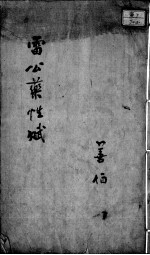 雷公藥性賦
善伯